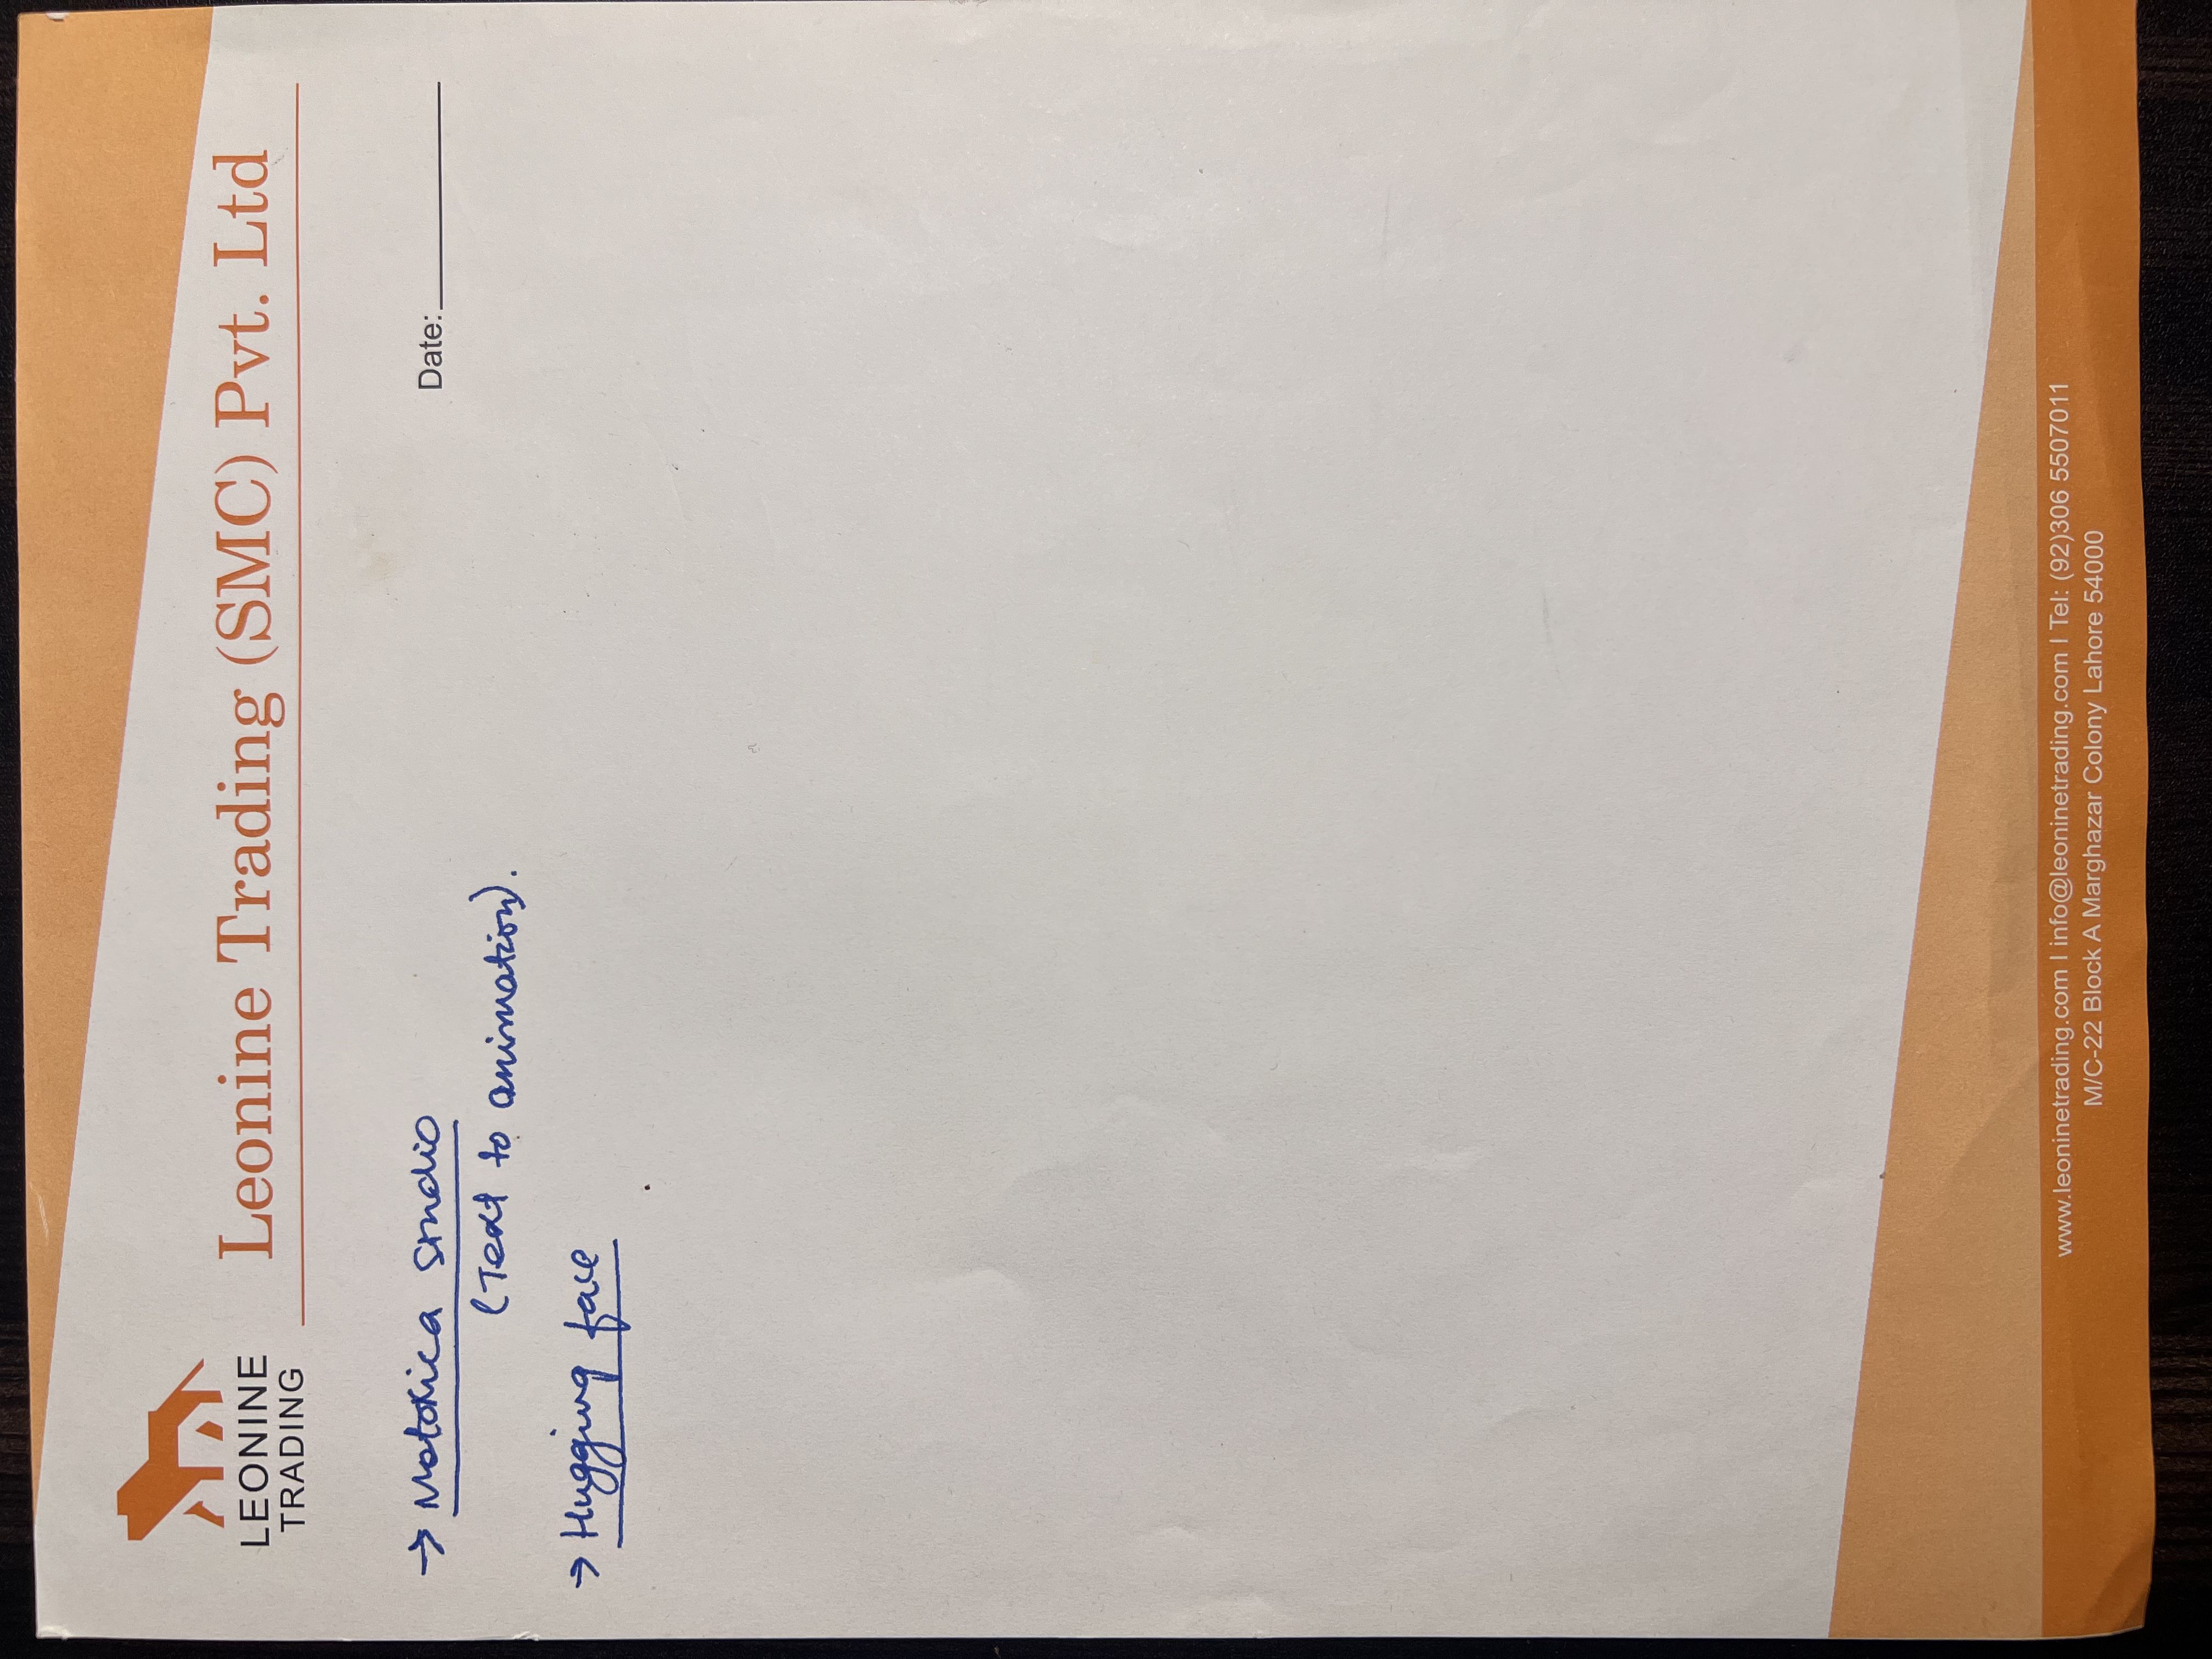 LEONINE
TRADING
Leonine Trading (SMC) Pvt. Ltd
Date:
→ Motorica Studio
(Text to animation).
→ Hugging face
www.leoninetrading.com I info@leoninetrading.com I Tel: (92)306 5507011
M/C-22 Block A Marghazar Colony Lahore 54000